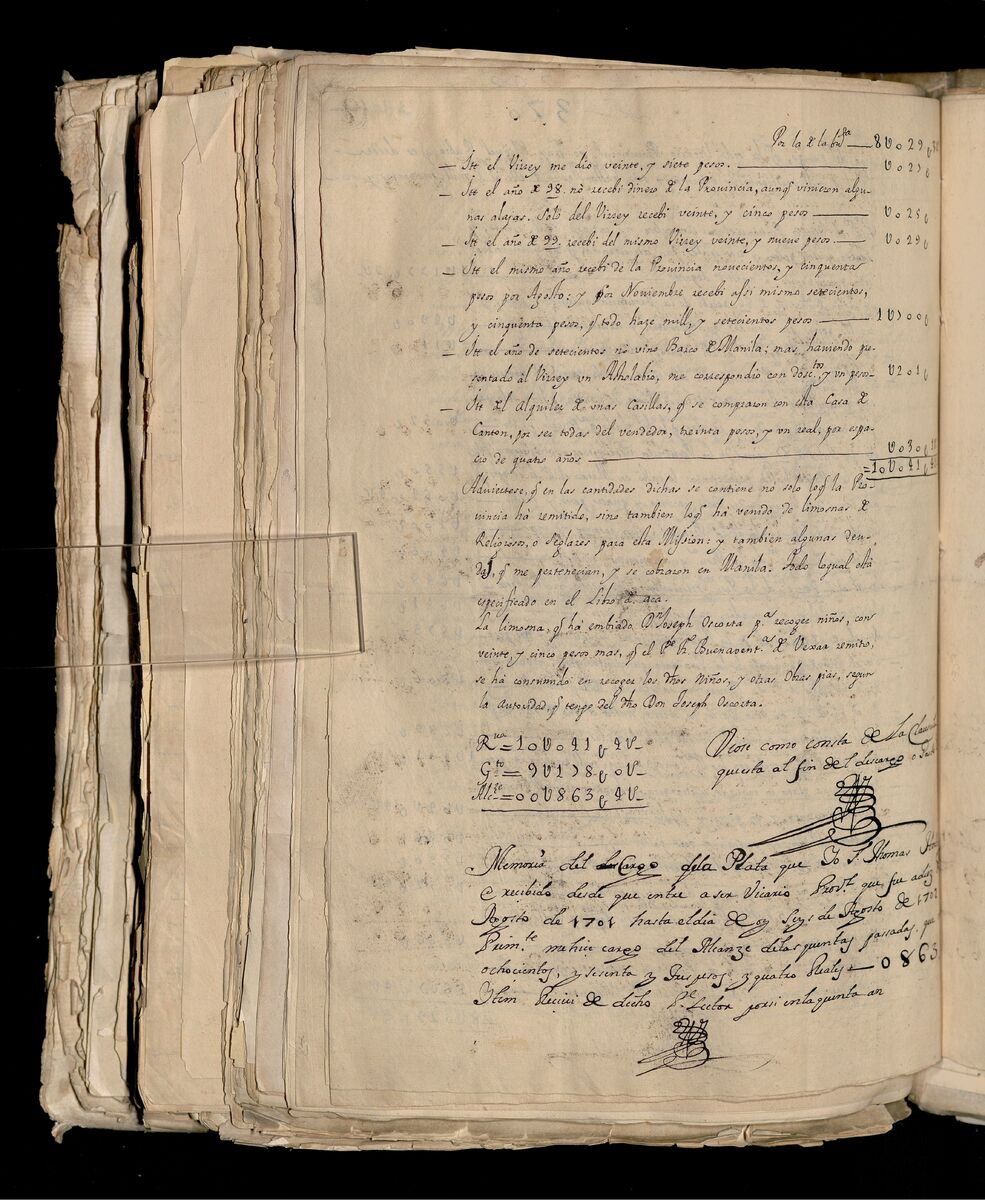 Por la de la bta fa — 8U029
— Itt el Virrey me dio veinte, y siete pesos. — U027
— Itt el año de 98. no recebi dinero de la Provincia, aunq̃ vinieron algu-
nas alajas. Solo del Virrey recebi veinte, y cinco pesos — U025
— Itt el año de 99. recebi del mismo Virrey veinte, y nueve pesos. — U029
— Itt el mismo año recebi de la Provincia novecientos, y cinquenta
pesos por Agosto: y por Noviembre recebi assi mismo setecientos,
y cinquenta pesos, q̃ todo haze mill, y setecientos pesos — 1U700
— Itt el año de setecientos no vino Barco de Manila: mas haviendo pre-
sentado al Virrey vn Astrolabio, me correspondio con dosctos, y vn peso — U201
— Itt del Alquiler de vnas Casillas, q̃ se compraron con esta Casa de
Canton, por ser todas del vendedor, treinta pesos, y vn real, por espa-
cio de quatro años — U030
=10U041
Adviertese, q̃ en las cantidades dichas se contiene no solo loq̃ la Pro-
vincia há remitido, sino tambien loq̃ há venido de limosnas de
Religiosos, o Seglares para esta Mission: y tambien algunas deu-
das, q̃ me pertenecian, y se cobraron en Manila. Todo loqual está
especificado en el Libro de aca.
La limosna, q̃ há embiado Dn Joseph Oscorta pa recoger niños, con
veinte, y cinco pesos mas, q̃ el Pe Fr. Buenaventa de Vexar remito,
se há consumido en recoger los dhos Niños, y otras Obras pias, segun
la autoridad, q̃ tengo del dho Don Joseph Oscorta.
Rva = 10U041 4V-
Gto = 9U178 0V-
Alze = 00U863 4V-
Viose como consta de la Clau
puesta al fin del descargo
Memoria del Cargo dela Plata que Io F. Thomas
e recibido desde que entre a ser Vicario Provl. que fue a
Agosto de 1701 hasta el dia de oy seys de Agosto de 1702
Primte me hice cargo del Alcanze delas quentas passadas, que
ochocientos, y sesenta y tres pesos y quatro Reales — 0863
Itim Recivi de dicho Pe. Lector por si en la quinta an